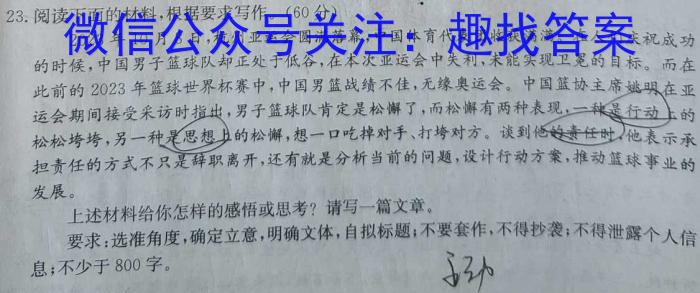 23. 阅读下面的材料,根据要求写作。(60分)
微信公众号关注：趣找答案
月 日,杭州亚运会圆满落幕,中国体育代表 庆祝成功
的时候,中国男子篮球队却正处于低谷,在本次亚运会中失利,未能实现卫冕的目标。而在
此前的2023年篮球世界杯赛中,中国男篮战绩不佳,无缘奥运会。中国篮协主席姚明在亚
运会期间接受采访时指出,男子篮球队肯定是松懈了,而松懈有两种表现,一种是行动上的
松松垮垮,另一种是思想上的松懈,想一口吃掉对手、打垮对方。谈到他的责任时,他表示承
担责任的方式不只是辞职离开,还有就是分析当前的问题,设计行动方案,推动篮球事业的
发展。
上述材料给你怎样的感悟或思考?请写一篇文章。
要求:选准角度,确定立意,明确文体,自拟标题;不要套作,不得抄袭;不得泄露个人信
息;不少于800字。